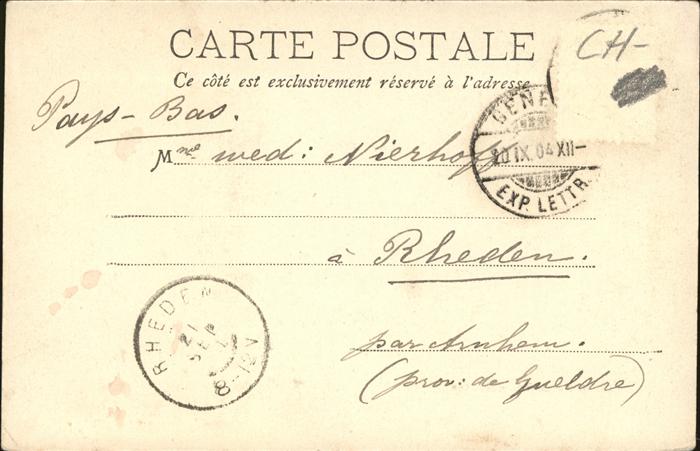 CARTE POSTALE
CH-
Ce côté est exclusivement réservé à l'adresse
Pays-Bas.
GENÈ
20 IX. 04 XII-
EXP. LETTR.
Mme wed: Nierhoff
à Rheden.
RHEDEN
21
SEP
8-12V
par Arnhem.
(prov: de Gueldre)